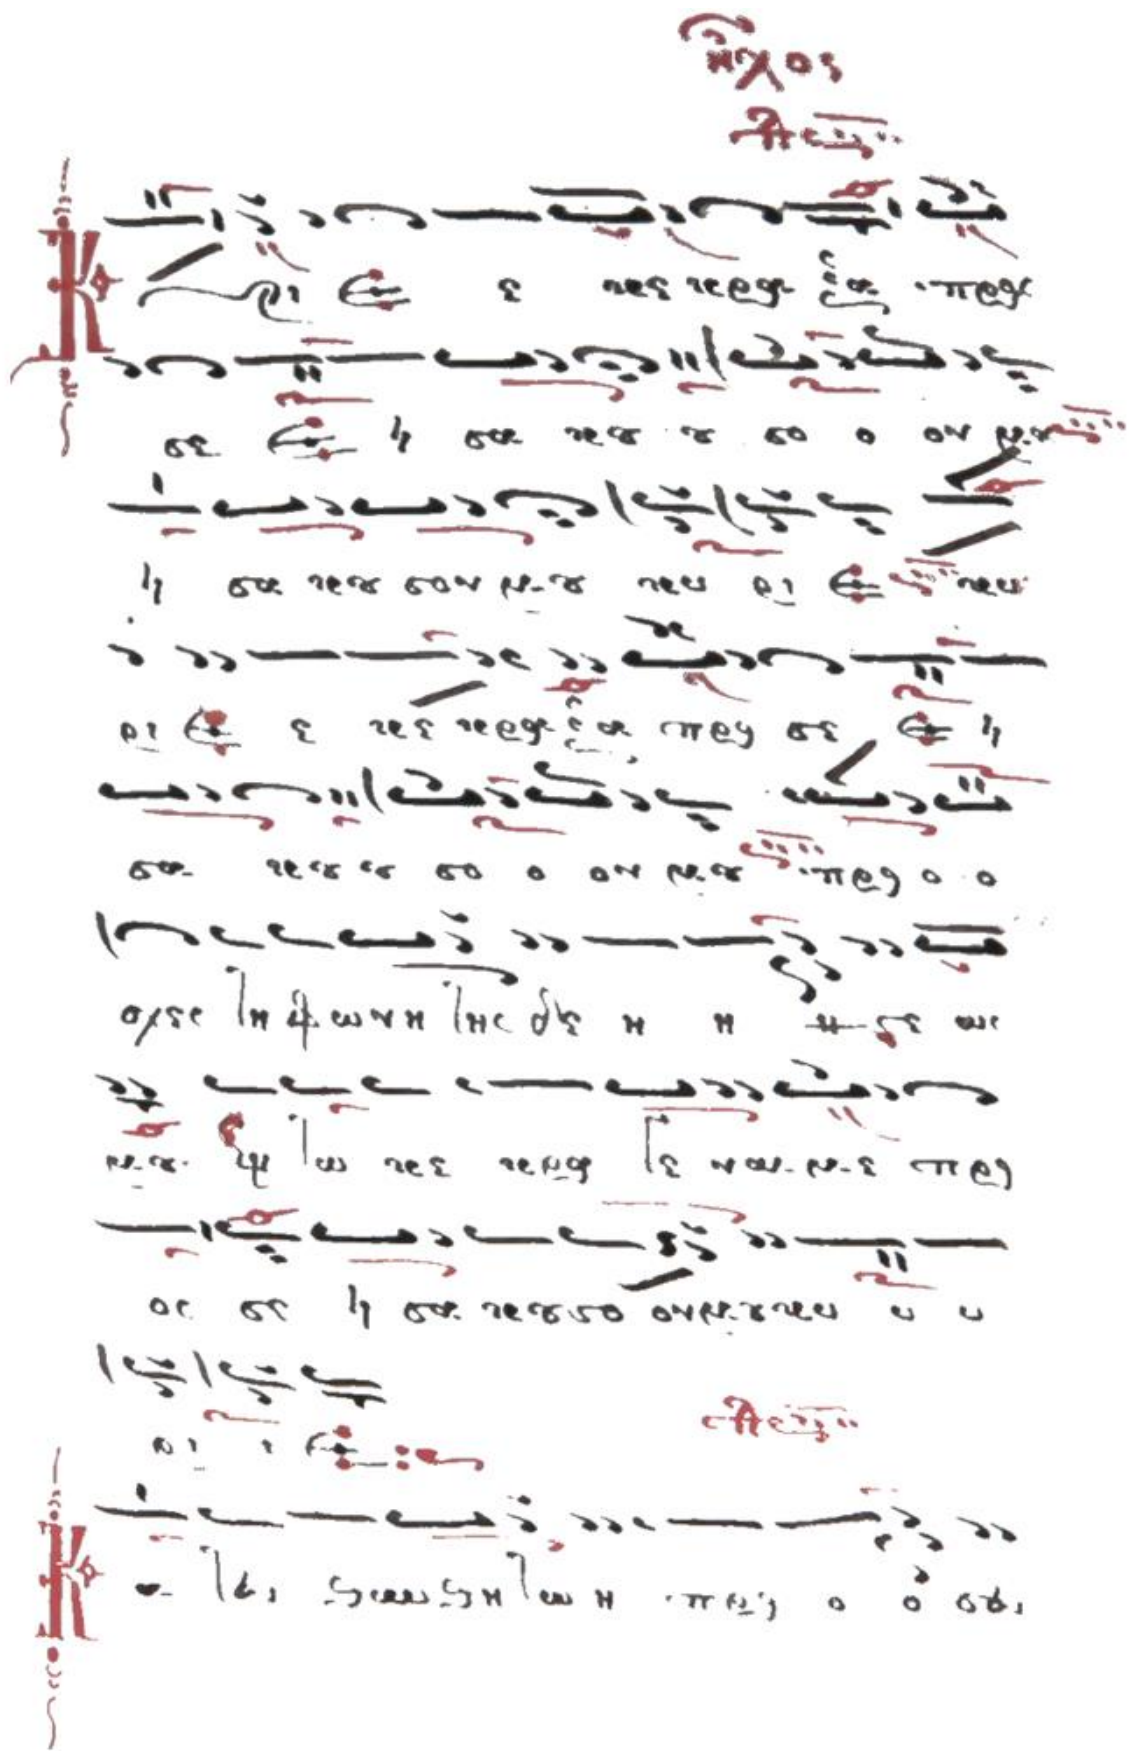 ἦχος
Κύρι ε ε κε κρα ξα προς
σε ει σα κου ου σο ο ον μου
ει σα κου σον μου κυ ρι ε κυ
ρι ε ε κε κρα ξα προς σε ει
σα κου ου σο ο ον μου προ ο ο
σχες τη φωνη της δε η η η σε ως
μου εν τω κε κρα γε ναι με προ
ος σε ει σα κου σο ον μου κυ υ υ
ρι ι ε
Κα τευ θυν θη τω η προ ο ο σευ